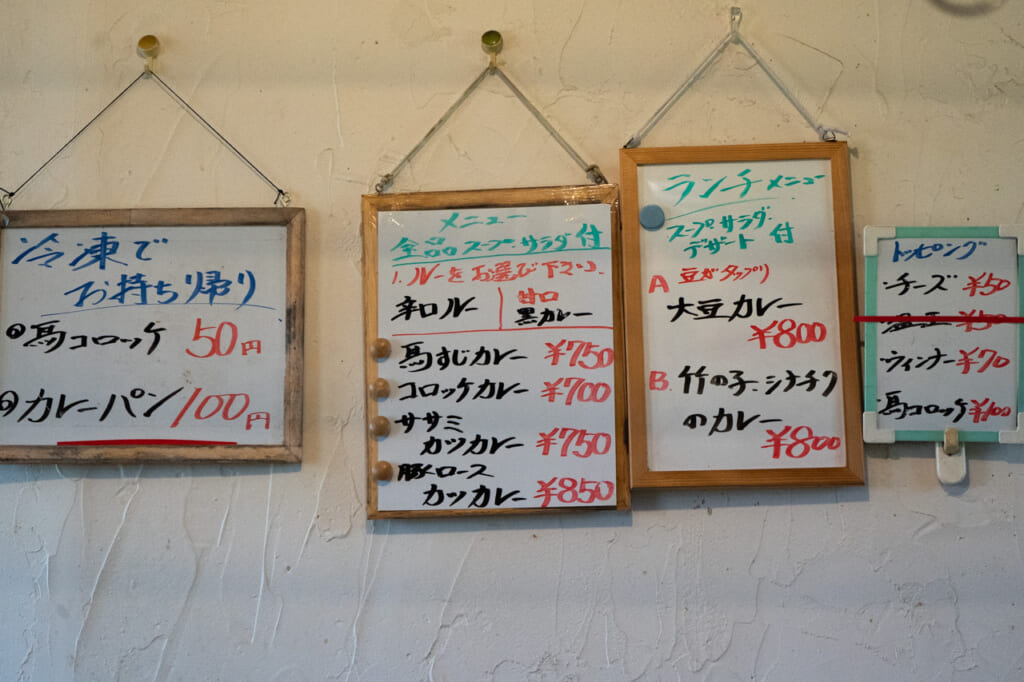 冷凍で
お持ち帰り
馬コロッケ 50円
カレーパン 100円
メニュー
全品スープ・サラダ付
1.ルーをお選び下さい。
辛口ルー
甘口
黒カレー
馬すじカレー ¥750
コロッケカレー ¥700
ササミ
カツカレー ¥750
豚ロース
カツカレー ¥850
ランチメニュー
スープ サラダ
デザート 付
A 豆がタップリ
大豆カレー
¥800
B. 竹の子、シナチク
のカレー
¥800
トッピング
チーズ ¥50
¥50
ウィンナー ¥70
馬コロッケ ¥100